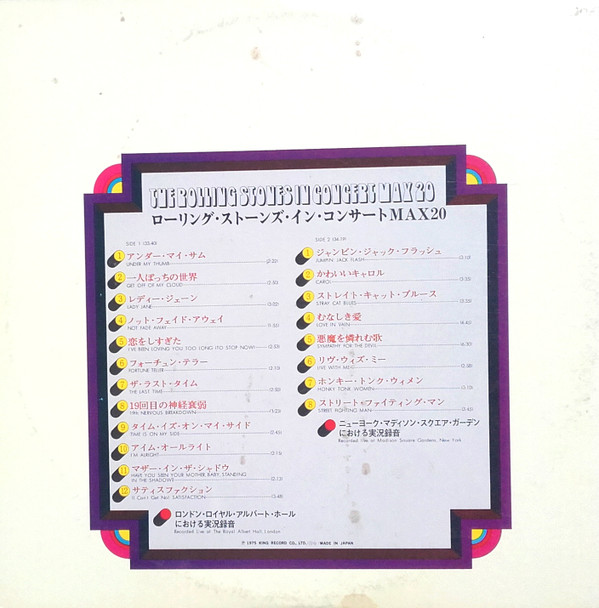 THE ROLLING STONES IN CONCERT MAX 20
ローリング・ストーンズ・イン・コンサートMAX20
SIDE 1
1 アンダー・マイ・サム
UNDER MY THUMB
2 一人ぼっちの世界
GET OFF OF MY CLOUD
3 レディー・ジェーン
LADY JANE
4 ノット・フェイド・アウェイ
NOT FADE AWAY
5 恋をしすぎた
I'VE BEEN LOVING YOU TOO LONG (TO STOP NOW)
6 フォーチュン・テラー
FORTUNE TELLER
7 ザ・ラスト・タイム
THE LAST TIME
8 19回目の神経衰弱
19th NERVOUS BREAKDOWN
9 タイム・イズ・オン・マイ・サイド
TIME IS ON MY SIDE
10 アイム・オールライト
I'M ALRIGHT
11 マザー・イン・ザ・シャドウ
HAVE YOU SEEN YOUR MOTHER BABY, STANDING
IN THE SHADOW?
12 サティスファクション
(I Can't Get No) SATISFACTION
ロンドン・ロイヤル・アルバート・ホール
における実況録音
Recorded Live at The Royal Albert Hall, London
SIDE 2
1 ジャンピン・ジャック・フラッシュ
JUMPIN' JACK FLASH
2 かわいいキャロル
CAROL
3 ストレイト・キャット・ブルース
STRAY CAT BLUES
4 むなしき愛
LOVE IN VAIN
5 悪魔を憐れむ歌
SYMPATHY FOR THE DEVIL
6 リヴ・ウィズ・ミー
LIVE WITH ME
7 ホンキー・トンク・ウィメン
HONKY TONK WOMEN
8 ストリート・ファイティング・マン
STREET FIGHTING MAN
ニューヨーク・マディソン・スクエア・ガーデン
における実況録音
Recorded live at Madison Square Gardens, New York
℗ 1975 KING RECORD CO., LTD. MADE IN JAPAN